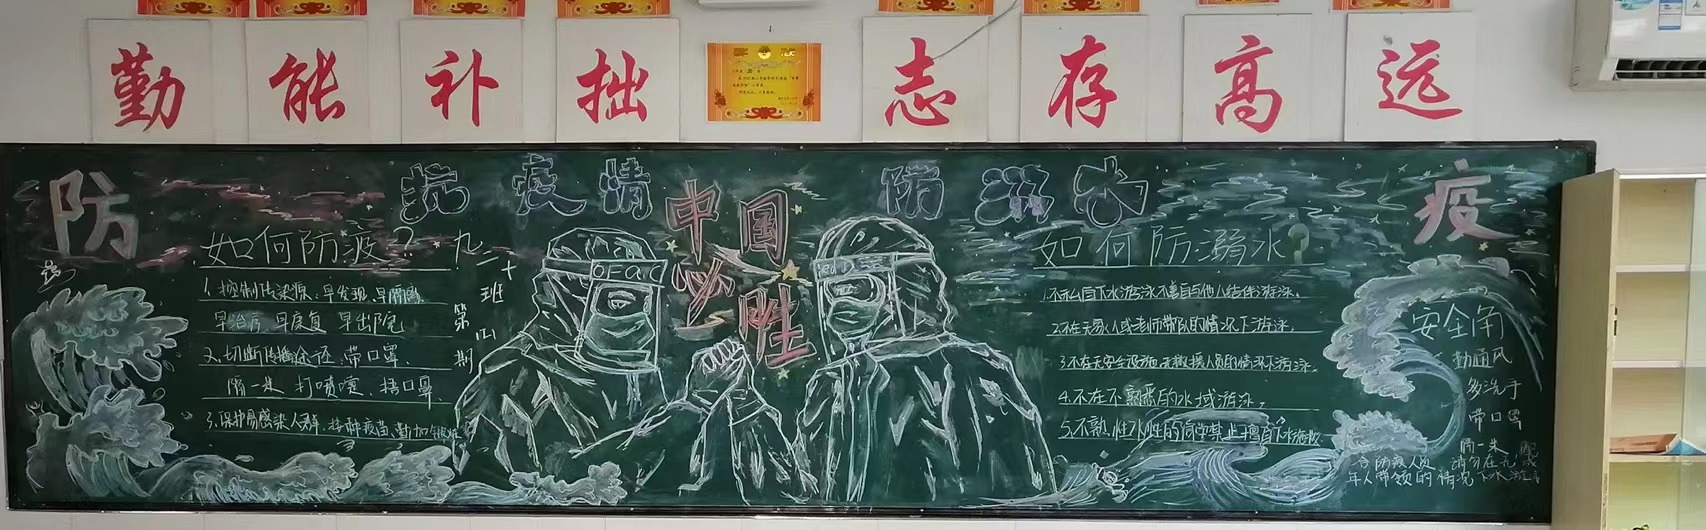 勤能补拙 志存高远
奖状
防 抗疫情 防溺水 疫
中国
必胜
如何防疫?
1、控制传染源:早发现、早隔离
早治疗、早康复 早出院
2、切断传播途径、带口罩、
隔一米 打喷嚏、捂口罩、
3、保护易感染人群、接种疫苗、勤加锻炼
九二十
班
第四
期
如何防溺水?
1.不私自下水游泳 不擅自与他人结伴游泳。
2.不在无家人或老师带队的情况下游泳。
3.不在无安全设施、无救援人员的情况下游泳。
4.不在不熟悉的水域游泳。
5.不熟悉水性的同学禁止擅自下水施救
安全角
勤通风
多洗手
带口罩
隔一米